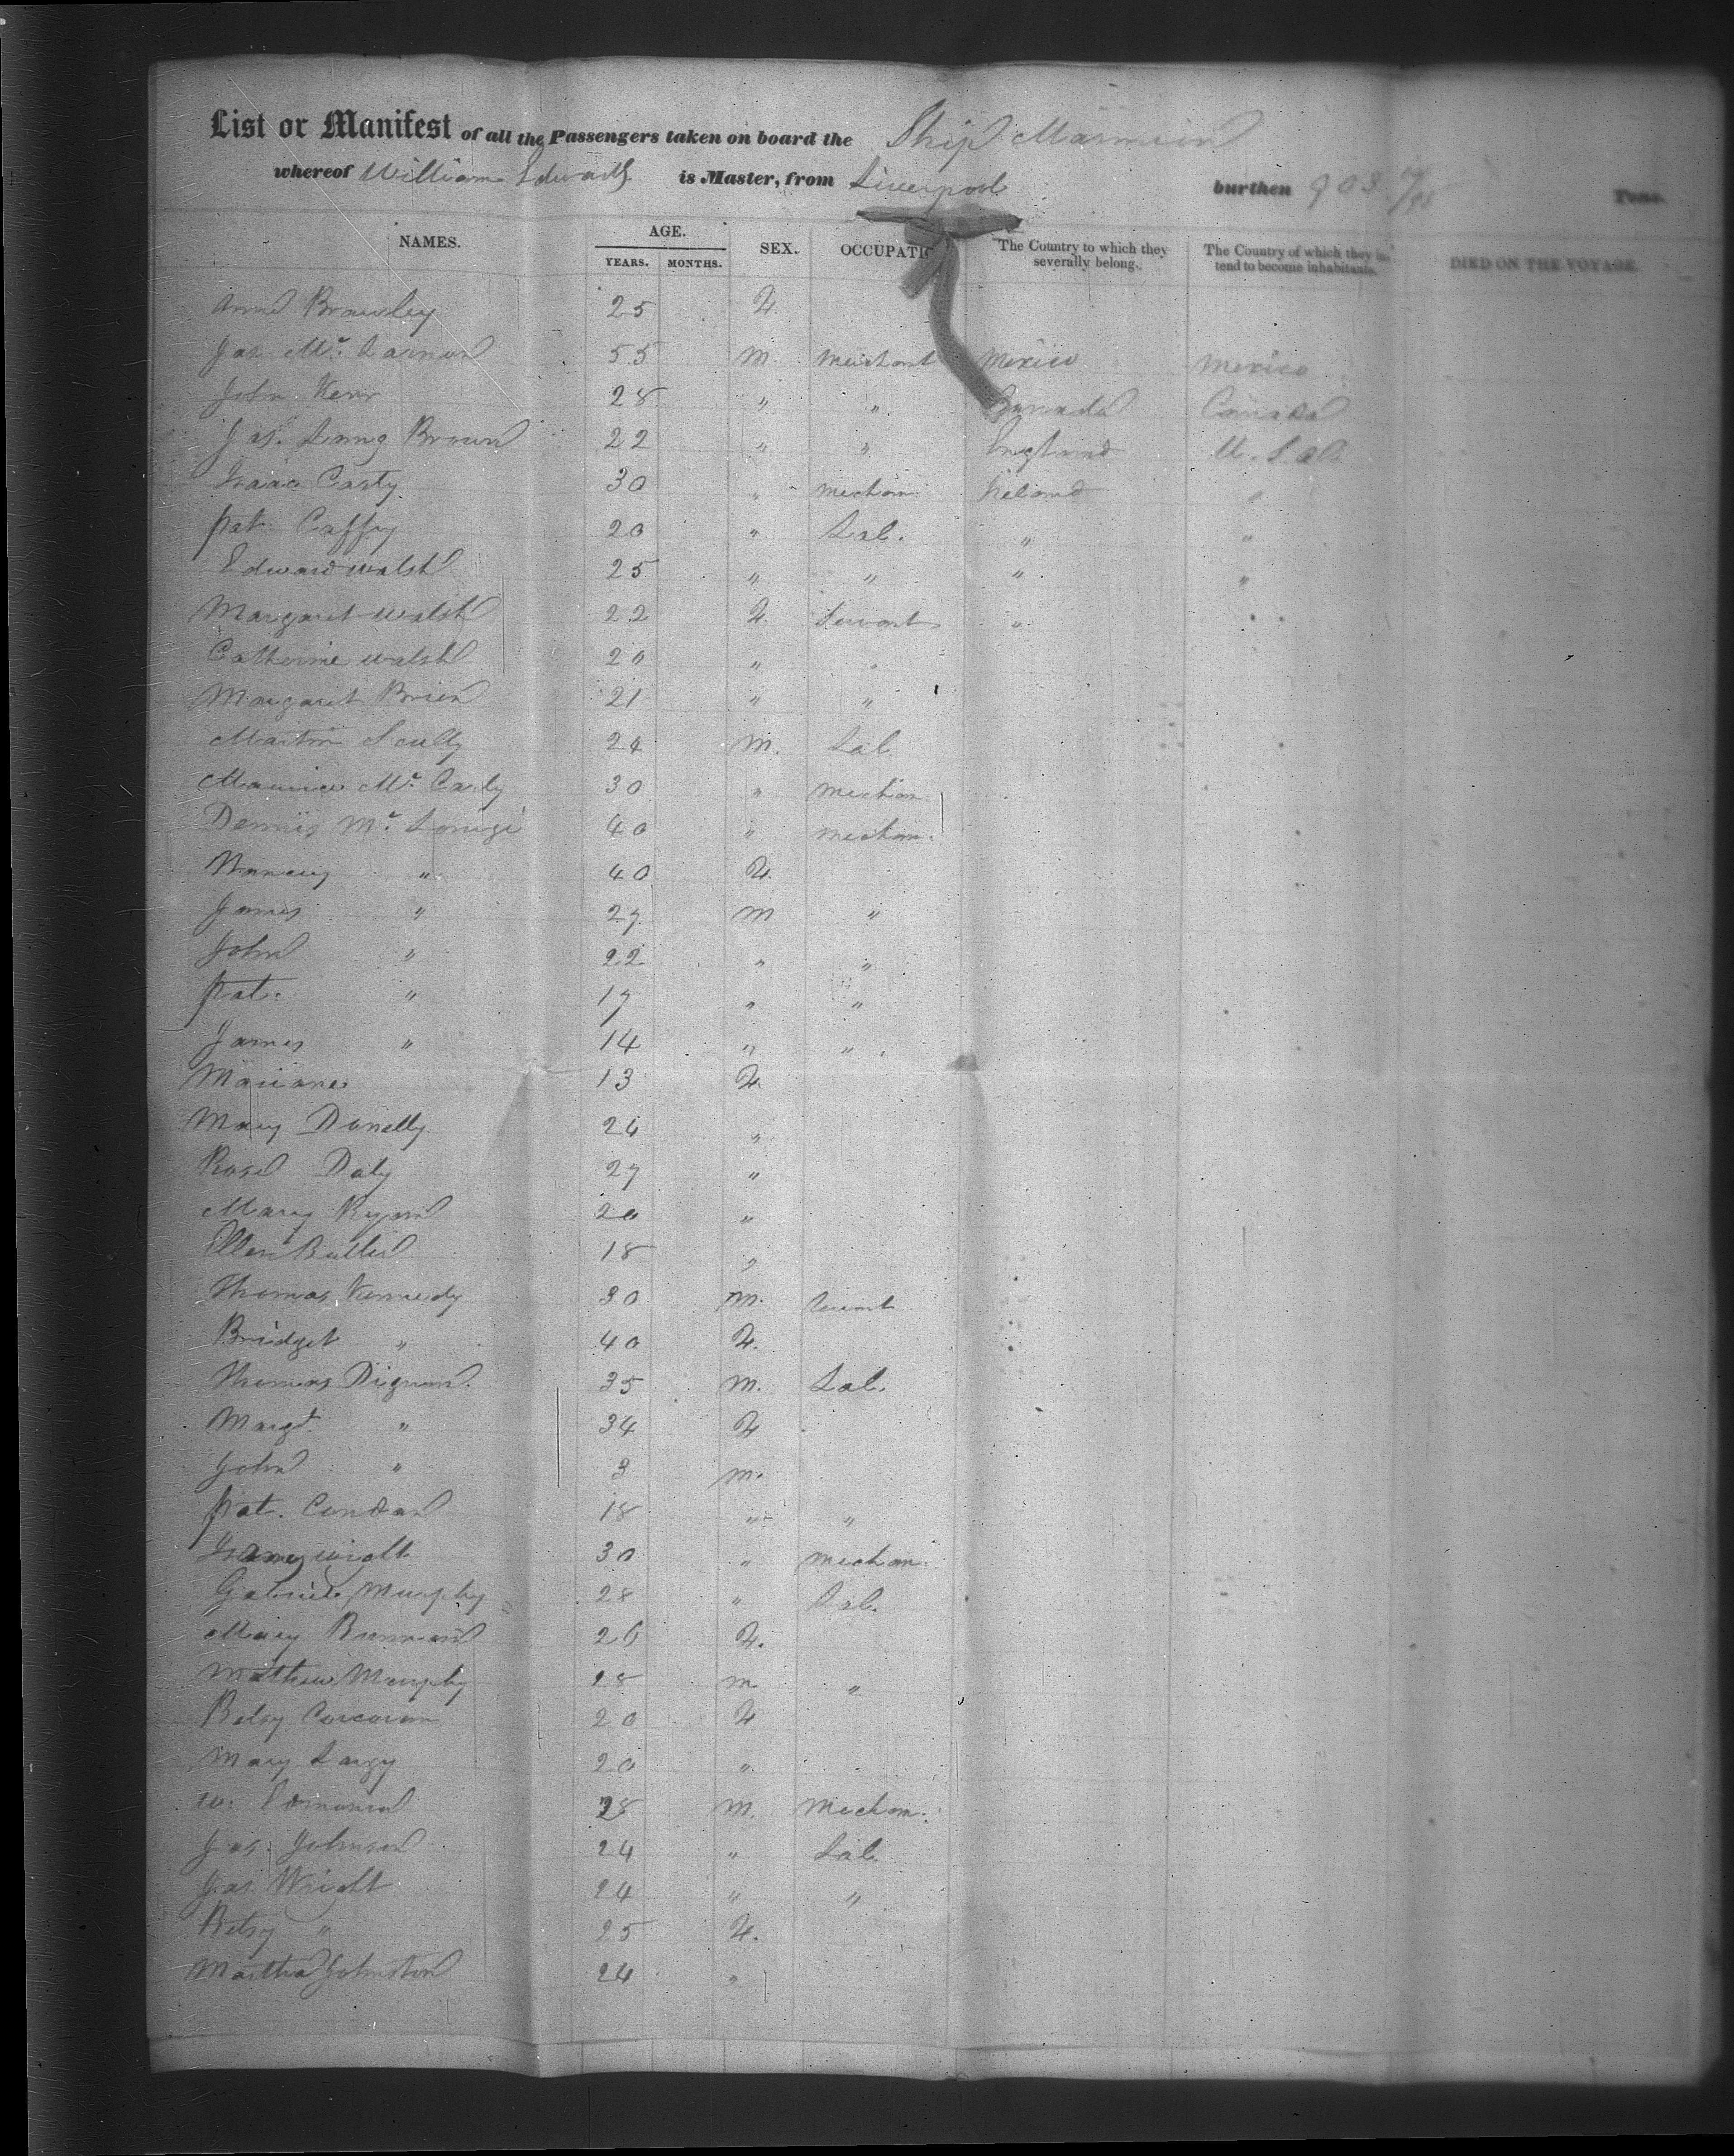 List or Manifest of all the Passengers taken on board the Ship Marmion
whereof William Edwards is Master, from Liverpool burthen 903 Tons.
NAMES. AGE. SEX. OCCUPATIO The Country to which they severally belong. The Country of which they in- tend to become inhabitants. DIED ON THE VOYAGE
YEARS. MONTHS.
Anne Brawley 25 F.
Jas Mc. Larnon 55 m. merchant Mexico Mexico
John Kerr 28 " " Canada Canada
Jas. Lang Brown 22 " " England U. S. A.
Isaac Carty 30 " mechan Ireland "
Pat. Caffry 20 " Lab. " "
Edward walsh 25 " " " "
Margaret walsh 22 F. Servant "
Catherine walsh 20 " "
Margaret Brien 21 " "
Martin Scully 24 m. Lab
Maurice Mc. Carty 30 " mechan
Dennis Mc. 40 " mechan.
Nancy " 40 F.
James " 27 m "
John " 22 " "
Pat. " 17 " "
James " 14 " "
Mariane 13 F.
Mary Donelly 24 "
Rose Daly 27 "
Mary Ryan 20 "
Ellen Butler 18 "
Thomas Kennedy 30 m.
Bridget " 40 F.
Thomas Dignum. 35 m. Lab.
Margt. " 34 F
John " 3 m.
Pat. Condan 18 " "
30 " mechan.
Murphy 28 " Lab.
Mary 26 F.
Mathew Murphy 28 m "
Betsy Corcoran 20 F
Mary 20 "
W. 28 m. Mechan.
Jas. Johnson 24 " Lab
Jas Wright 24 " "
Betsy " 25 F.
Martha Johnston 24 "